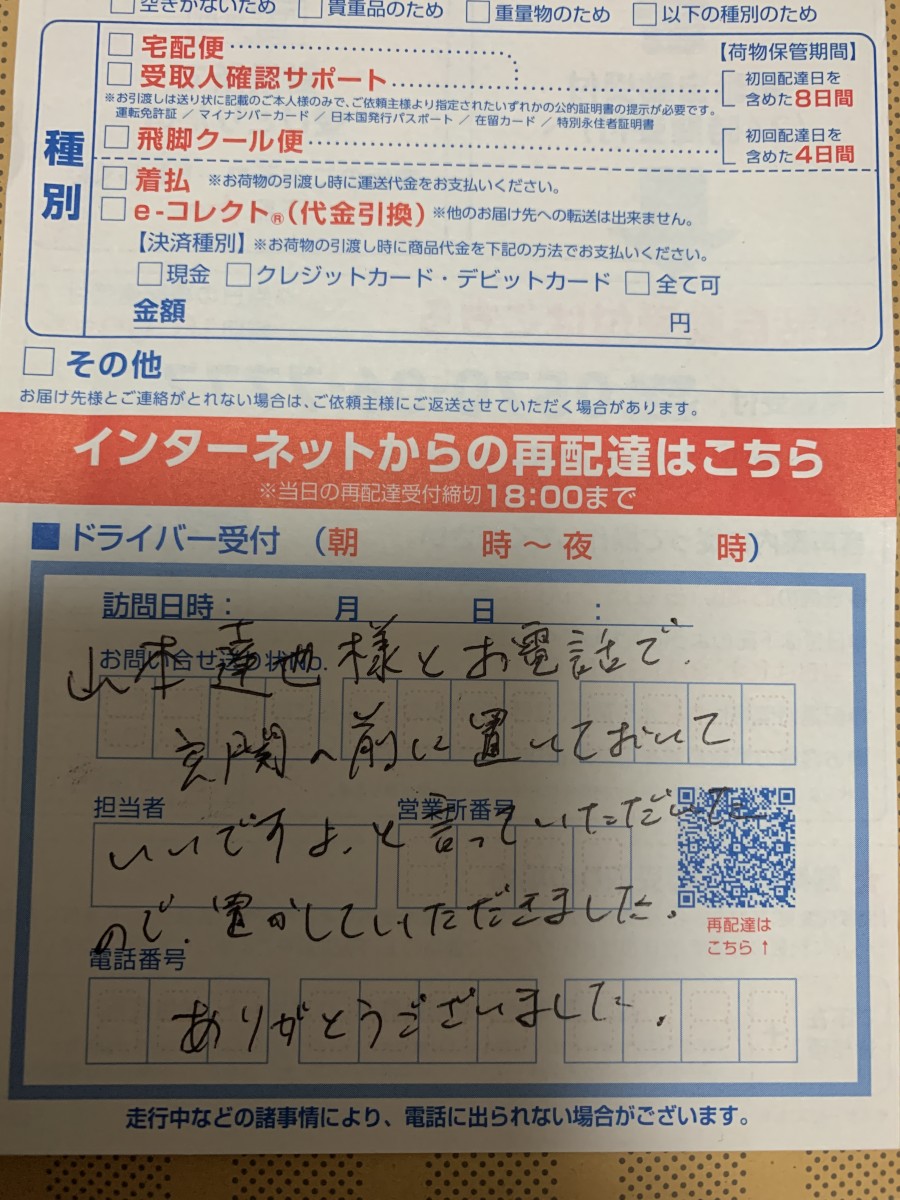 □ 空きがないため □ 貴重品のため □ 重量物のため □ 以下の種別のため
種別
□ 宅配便
□ 受取人確認サポート
【荷物保管期間】
初回配達日を
含めた8日間
※お引渡しは送り状に記載のご本人様のみで、ご依頼主様より指定されたいずれかの公的証明書の提示が必要です。
運転免許証 ／ マイナンバーカード ／ 日本国発行パスポート ／ 在留カード ／ 特別永住者証明書
□ 飛脚クール便
初回配達日を
含めた4日間
□ 着払 ※お荷物の引渡し時に運送代金をお支払いください。
□ e-コレクト®（代金引換）※他のお届け先への転送は出来ません。
【決済種別】※お荷物の引渡し時に商品代金を下記の方法でお支払いください。
□ 現金 □ クレジットカード・デビットカード □ 全て可
金額 円
□ その他
お届け先様とご連絡がとれない場合は、ご依頼主様にご返送させていただく場合があります。
インターネットからの再配達はこちら
※当日の再配達受付締切18:00まで
■ ドライバー受付 （朝 時～夜 時）
訪問日時： 月 日 ：
お問い合せ送り状No.
山本達也様とお電話で、
玄関の前に置いておいて
担当者
営業所番号
いいですよ、と言っていただいた
ので、置かしていただきました。
再配達は
こちら↑
電話番号
ありがとうございました。
走行中などの諸事情により、電話に出られない場合がございます。